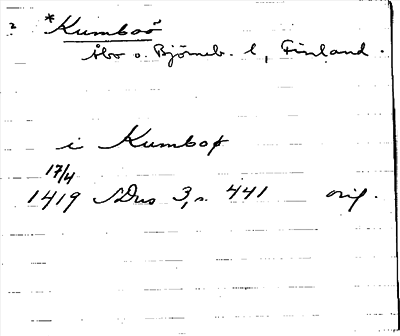 2 *Kumboö
Åbo o. Björneb. l, Finland.
i Kumboø
17/4
1419 SDns 3, s. 441 orig.